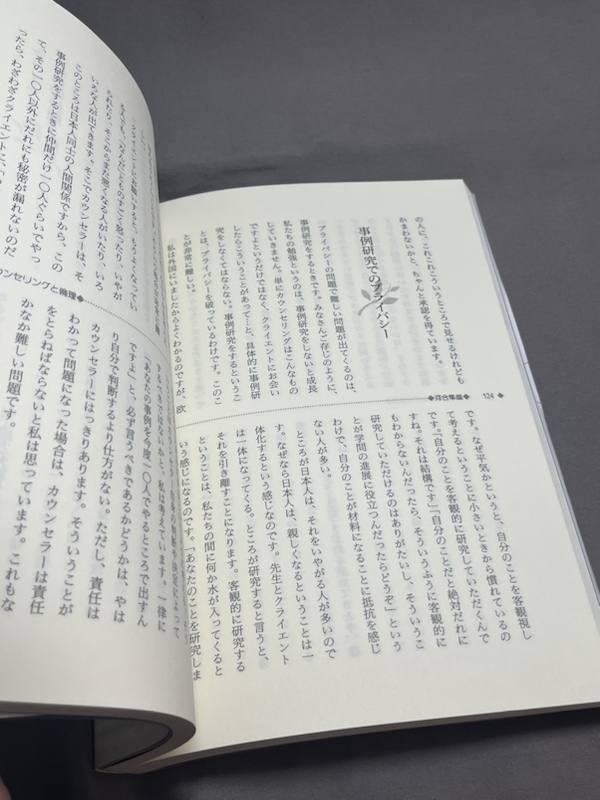 の人に、これこれこういうところで見せるけれども
かまわないかと、ちゃんと承認を得ています。
事例研究でのプライバシー
プライバシーの問題で難しい問題が出てくるのは、
事例研究をするときです。みなさんご存じのように、
私たちの勉強というのは、事例研究をしないと成長
していきません。単にカウンセリングはこんなもの
ですよというだけではなく、クライエントにお会い
したらこういうことがあって――と、具体的に事例研
究をしなくてはならない。事例研究をするというこ
とは、プライバシーを破っているわけです。このこ
とが非常に難しい。
私は外国にいましたからよくわかるのですが、欧
124
◆河合隼雄◆
です。なぜ平気かというと、自分のことを客観視し
て考えるということに小さいときから慣れているの
です。「自分のことを客観的に研究していただくんで
すね。それは結構です」「自分のことだと絶対だれに
もわからないんだったら、そういうふうに客観的に
研究していただけるのはありがたいし、そういうこ
とが学問の進展に役立つんだったらどうぞ」という
わけで、「自分のことが材料になることに抵抗を感じ
ない人が多い。
ところが日本人は、それをいやがる人が多いので
す。なぜなら日本人は、親しくなるということは一
体化するという感じなのです。先生とクライエント
は一体になってくる。ところが研究すると言うと、
それを引き離すことになります。客観的に研究する
ということは、私たちの間に何か水が入ってくると
いう感じになるのです。「あなたのことを研究しま
もらっても、なんだとものすごく怒ったり、いやが
られたり、そこからまた悪くなる人がいたり、いろ
いろな人が出てきます。そこでカウンセラーは、そ
このところは日本人同士の人間関係ですから、この
事例研究をするときに仲間だけ一〇人ぐらいでやっ
て、その一〇人以外にだれにも秘密が漏れないのだ
ったら、わざわざクライエントに、「
ウンセリングと倫理◆
するべきではないかと、私は考えています。一律に
「あなたの事例を今度一〇人でやるところで出すん
ですよ」と、必ず言うべきであるかどうかは、やは
り自分で判断するより仕方がない。ただし、責任は
カウンセラーにはっきりあります。そういうことが
わかって問題になった場合は、カウンセラーは責任
をとらねばならないと私は思っています。これもな
かなか難しい問題です。